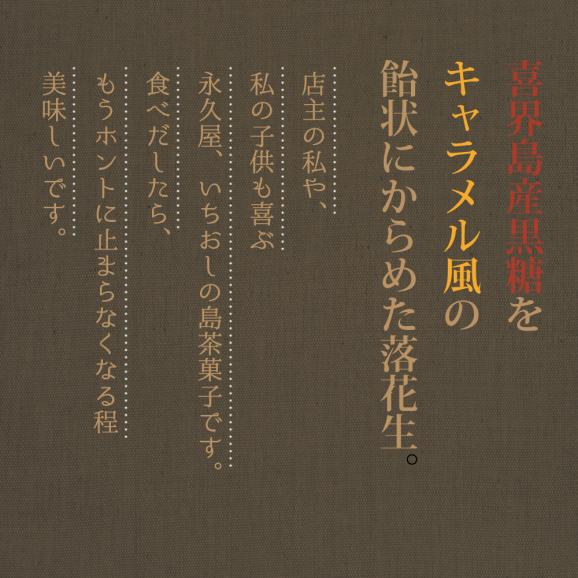 喜界島産黒糖を
キャラメル風の
飴状にからめた落花生。
店主の私や、
私の子供も喜ぶ
永久屋、いちおしの島茶菓子です。
食べだしたら、
もうホントに止まらなくなる程
美味しいです。